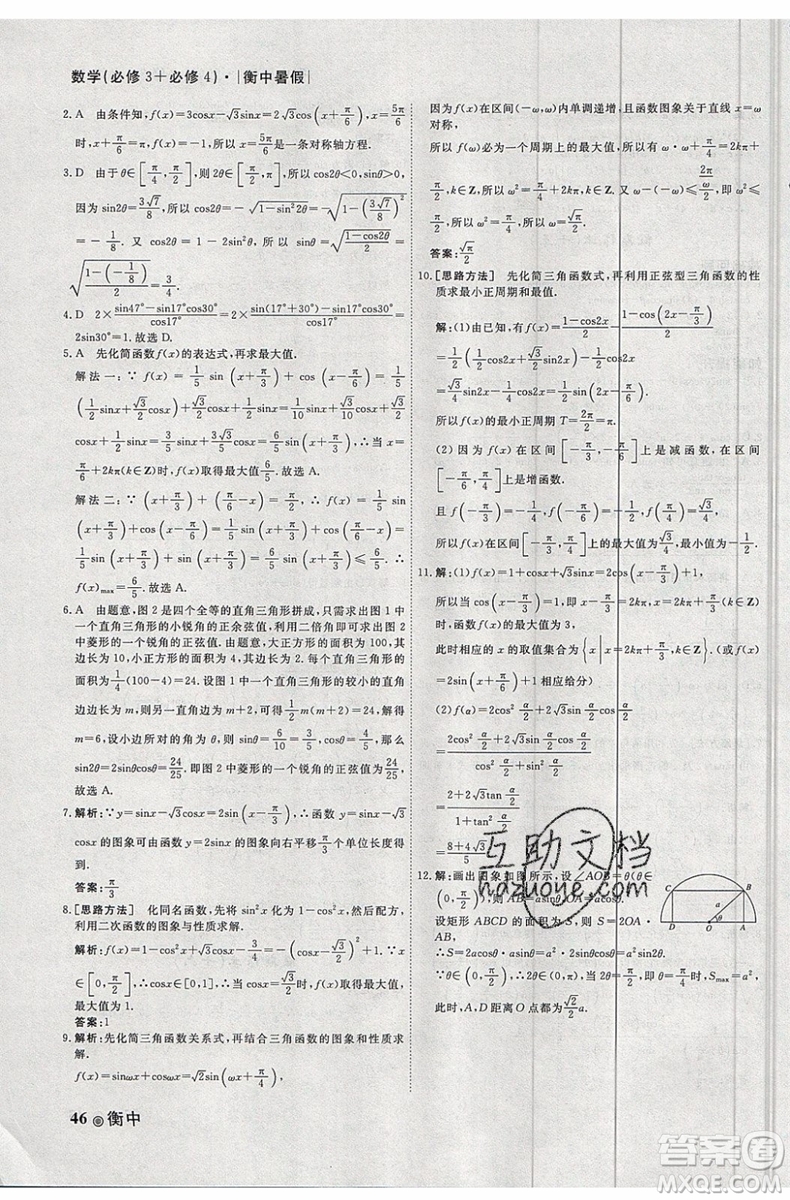 数学(必修3+必修4)·|衡中暑假|
2. A 由条件知,f(x)=3cosx-√3sinx=2√3cos(x+π/6),x=5π/6
时,x+π/6=π,所以x=5π/6是对称轴方程.
3. D 由于θ∈[π/4,π/2],则2θ∈[π/2,π],所以cos2θ<0,sinθ>0,
因为sin2θ=3√7/8,所以cos2θ=-√(1-sin²2θ)=-√(1-(3√7/8)²)
=-1/8.又cos2θ=1-2sin²θ,所以sinθ=√((1-cos2θ)/2)=
√((1-(-1/8))/2)=3/4.
4. D 2×(sin47°-sin17°cos30°)/cos17°=2×(sin(17°+30°)-sin17°cos30°)/cos17°=
2sin30°=1.故选D.
5. A 先化简函数f(x)的表达式,再求最大值.
解法一:∵f(x)=1/5sin(x+π/3)+cos(x-π/6)=
1/5(1/2sinx+√3/2cosx)+√3/2cosx+1/2sinx=1/10sinx+√3/10
cosx+√3/2cosx+1/2sinx=3/5sinx+3√3/5cosx=6/5sin(x+π/3),∴当x=
π/6+2kπ(k∈Z)时,f(x)取得最大值6/5.故选A.
解法二:∵(x+π/3)+(π/6-x)=π/2,∴f(x)=1/5sin
(x+π/3)+cos(x-π/6)=1/5sin(x+π/3)+cos(π/6-x)=1/5sin
(x+π/3)+sin(x+π/3)=6/5sin(x+π/3)≤6/5.
∴f(x)max=6/5.故选A.
6. A 由题意,图2是四个全等的直角三角形拼成,只需求出图1中
一个直角三角形的小锐角的正余弦值,利用二倍角即可求出图2
中菱形的一个锐角的正弦值.由题意,大正方形的面积为100,其
边长为10,小正方形的面积为4,其边长为2.每个直角三角形的
面积为1/4(100-4)=24.设图1中一个直角三角形的较小的直角
边边长为m,则另一个直角边边长为m+2,可得1/2m(m+2)=24,解得
m=6,设小边所对的角为θ,则sinθ=6/10=3/5,cosθ=4/5,那么
sin2θ=2sinθcosθ=24/25.即图2中菱形的一个锐角的正弦值为24/25.
故选A.
7. 解析:∵y=sinx-√3cosx=2sin(x-π/3),∴函数y=sinx-√3
cosx的图象可由函数y=2sinx的图象向右平移π/3个单位长度得
到.
答案:π/3
8. [思路方法] 化同名函数,先将sin²x化为1-cos²x,然后配方,
利用二次函数的图象与性质求解.
解析:f(x)=1-cos²x+√3cosx-3/4=-(cosx-√3/2)²+1.∵x
∈[0,π/2],∴cosx∈[0,1],∴当cosx=√3/2时,f(x)取得最大值,
最大值为1.
答案:1
9. 解析:先化简三角函数关系式,再结合三角函数的图象和性质求
解.
f(x)=sinωx+cosωx=√2sin(ωx+π/4),
因为f(x)在区间(-ω,ω)内单调递增,且函数图象关于直线x=ω
对称,
所以f(ω)必为一个周期上的最大值,所以有ω·ω+π/4=2kπ+
π/2,k∈Z,所以ω²=π/4+2kπ,k∈Z.又ω-(-ω)≤(2π/ω)/2,即ω²≤
π/2,所以ω²=π/4,所以ω=√π/2.
答案:√π/2
10. [思路方法] 先化简三角函数式,再利用正弦型三角函数的性
质求最小正周期和最值.
解:(1)由已知,有f(x)=(1-cos2x)/2-(1-cos(2x-π/3))/2
=1/2(1/2cos2x+√3/2sin2x)-1/2cos2x
=√3/4sin2x-1/4cos2x=1/2sin(2x-π/6).
所以f(x)的最小正周期T=2π/2=π.
(2)因为f(x)在区间[-π/3,-π/6]上是减函数,在区间
[-π/6,π/4]上是增函数.
且f(-π/3)=-1/4,f(-π/6)=-1/2,f(π/4)=√3/4,
所以f(x)在区间[-π/3,π/4]上的最大值为√3/4,最小值为-1/2.
11. 解:(1)f(x)=1+cosx+√3sinx=2cos(x-π/3)+1,
所以当cos(x-π/3)=1,即x-π/3=2kπ,x=2kπ+π/3(k∈Z)
时,函数f(x)的最大值为3,
此时相应的x的取值集合为{x|x=2kπ+π/3,k∈Z}.(或f(x)
=2sin(x+π/6)+1相应给分)
(2)f(α)=2cos²α/2+2√3sinα/2cosα/2
=(2cos²α/2+2√3sinα/2cosα/2)/(cos²α/2+sin²α/2)
=(2+2√3tanα/2)/(1+tan²α/2)
=(8+4√3)/5.
12. 解:画出图象如图所示,设∠AOB=θ(θ∈
(0,π/2)),则AB=asinθ,OA=acosθ.
设矩形ABCD的面积为S,则S=2OA·
AB,
∴S=2acosθ·asinθ=a²·2sinθcosθ=a²sin2θ.
∵θ∈(0,π/2),∴2θ∈(0,π),当2θ=π/2,即θ=π/4时,Smax=a²,
此时,A,D距离O点都为√2/2a.
C B
a
θ
D O A
互助文档
hdzuoye.com
46 衡中
答案圈
MXQE.COM